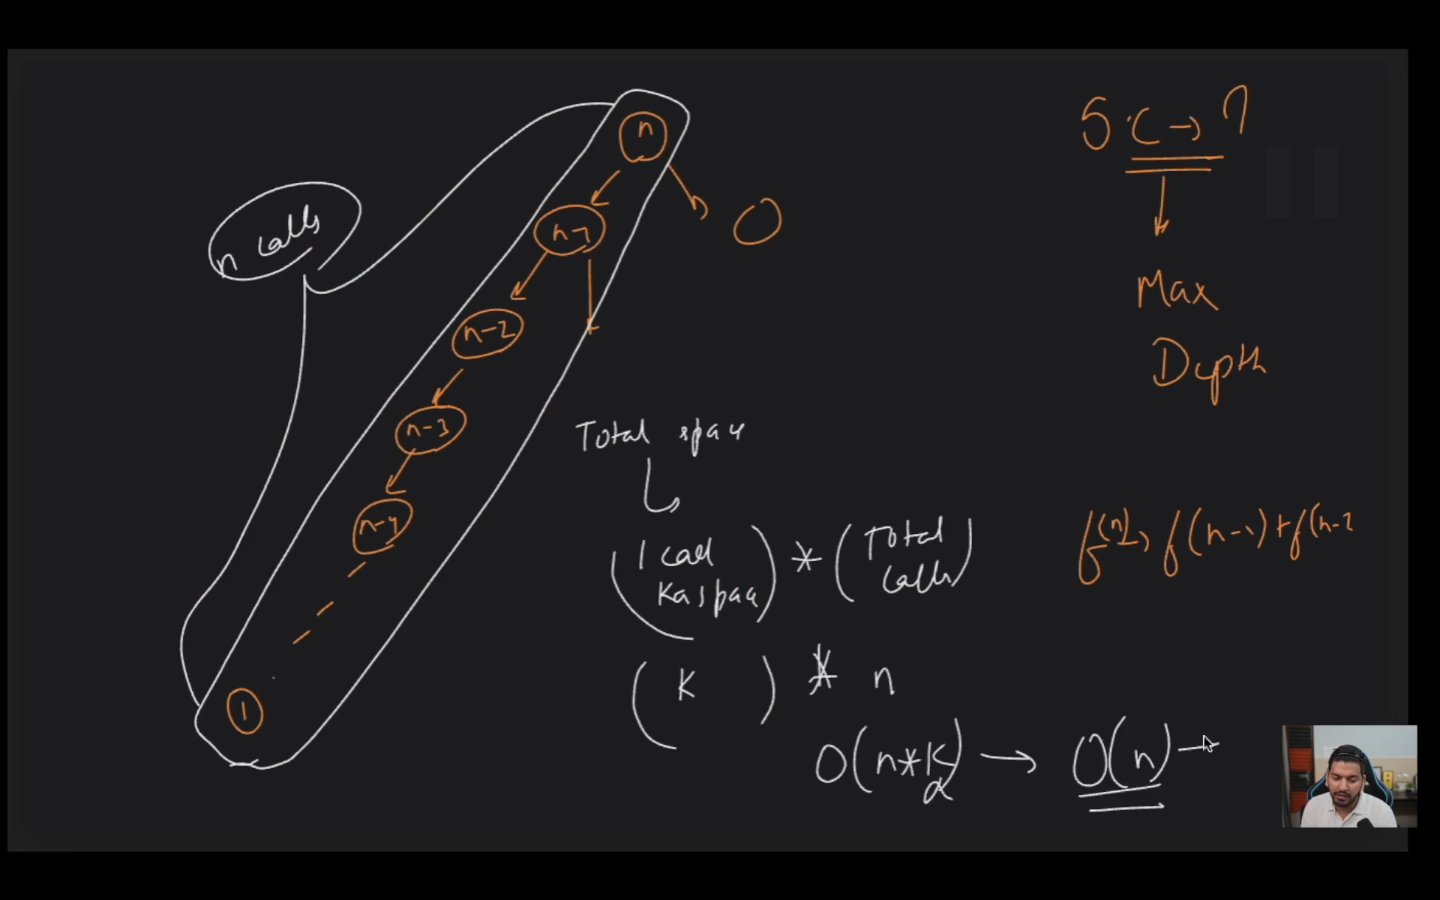 n
n-1
n-2
n-3
n-4
1
n calls
S.C → ?
Max
Depth
Total space
(1 call ka space) * (Total calls)
(K) * n
O(n*K) → O(n) →
f(n) → f(n-1) + f(n-2